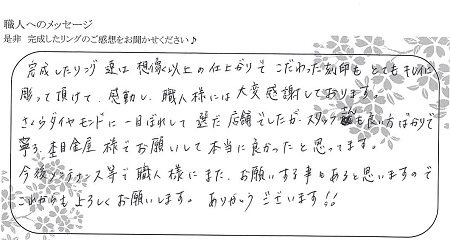 職人へのメッセージ
是非 完成したリングのご感想をお聞かせください♪
完成したリング達は想像以上の仕上がりで こだわった刻印も とてもキレイに
彫って頂けて、感動し、職人様には大変感謝しております。
さくらダイヤモンドに一目ぼれして選だ店舗でしたが、スタッフ も良い方ばかりで
寧ろ、杢目金屋 様でお願いして本当に良かったと思ってます。
今後メンテナンス等で職人様にまた、お願いする事もあると思いますので
これからも よろしくお願いします。 ありがとうございます!!